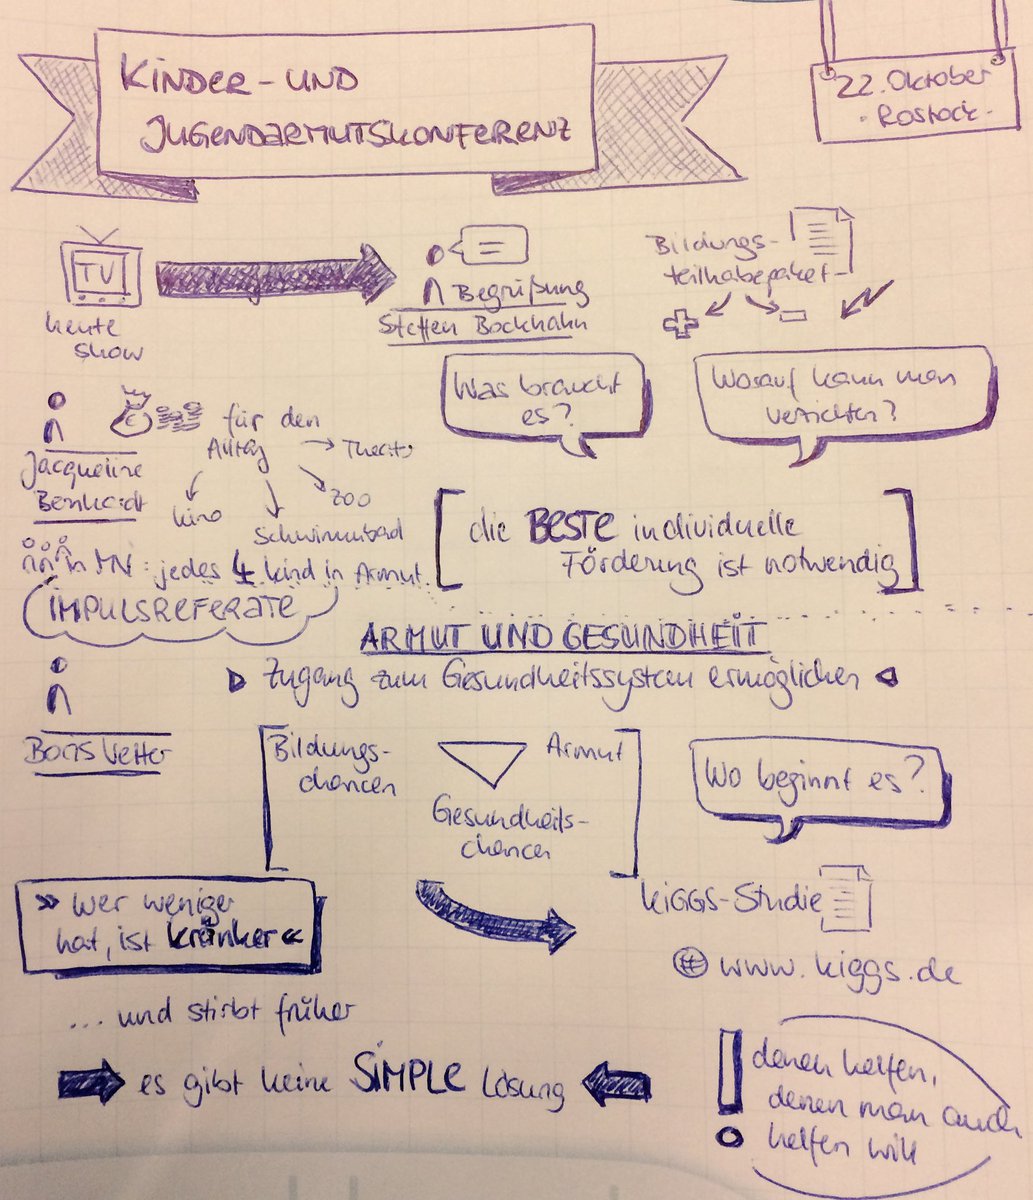 KINDER- UND
JUGENDARMUTSKONFERENZ
22. Oktober
- Rostock -
TV
heute
show
Begrüßung
Steffen Bockhahn
Bildungs-
teilhabepaket
Was braucht
es?
Worauf kann man
verzichten?
Jacqueline
Bernhardt
€
für den
Alltag
Theater
Kino
Schwimmbad
Zoo
MV: jedes 4 Kind in Armut
die BESTE individuelle
Förderung ist notwendig
IMPULSREFERATE
ARMUT UND GESUNDHEIT
Zugang zum Gesundheitssystem ermöglichen
Boris Vetter
Bildungs-
chancen
Armut
Gesundheits-
chancen
Wo beginnt es?
» Wer weniger
hat, ist kränker «
KiGGS-Studie
www.kiggs.de
... und stirbt früher
es gibt keine SIMPLE Lösung
denen helfen,
denen man auch
helfen will